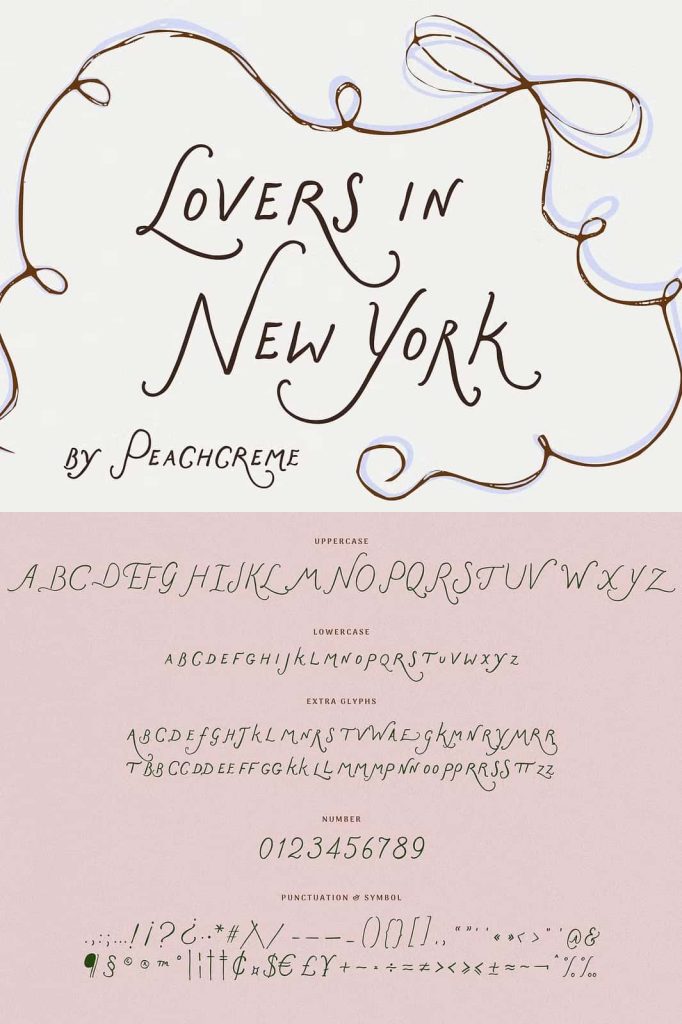 LOVERS IN
NEW YORK
BY PEACHCREME
UPPERCASE
A B C D E F G H I J K L M N O P Q R S T U V W X Y Z
LOWERCASE
A B C D E F G H I J K L M N O P Q R S T U V W X Y Z
EXTRA GLYPHS
A B C D E F G H J K L M N R S T V W A E G K M N R Y M R R
T B B C C D D E E F F G G K K L L M M M P N N O O P P R R S S T T Z Z
NUMBER
0 1 2 3 4 5 6 7 8 9
PUNCTUATION & SYMBOL
. , : ; … ! ¡ ? ¿ · • * # / \ ( ) { } [ ] @ &
¶ § © ® ™ ° | ¦ † ‡ ¢ ¤ $ € £ ¥ + − × ÷ = ≠ > < ≥ ≤ ± ≈ ~ ¬ ^ % ‰